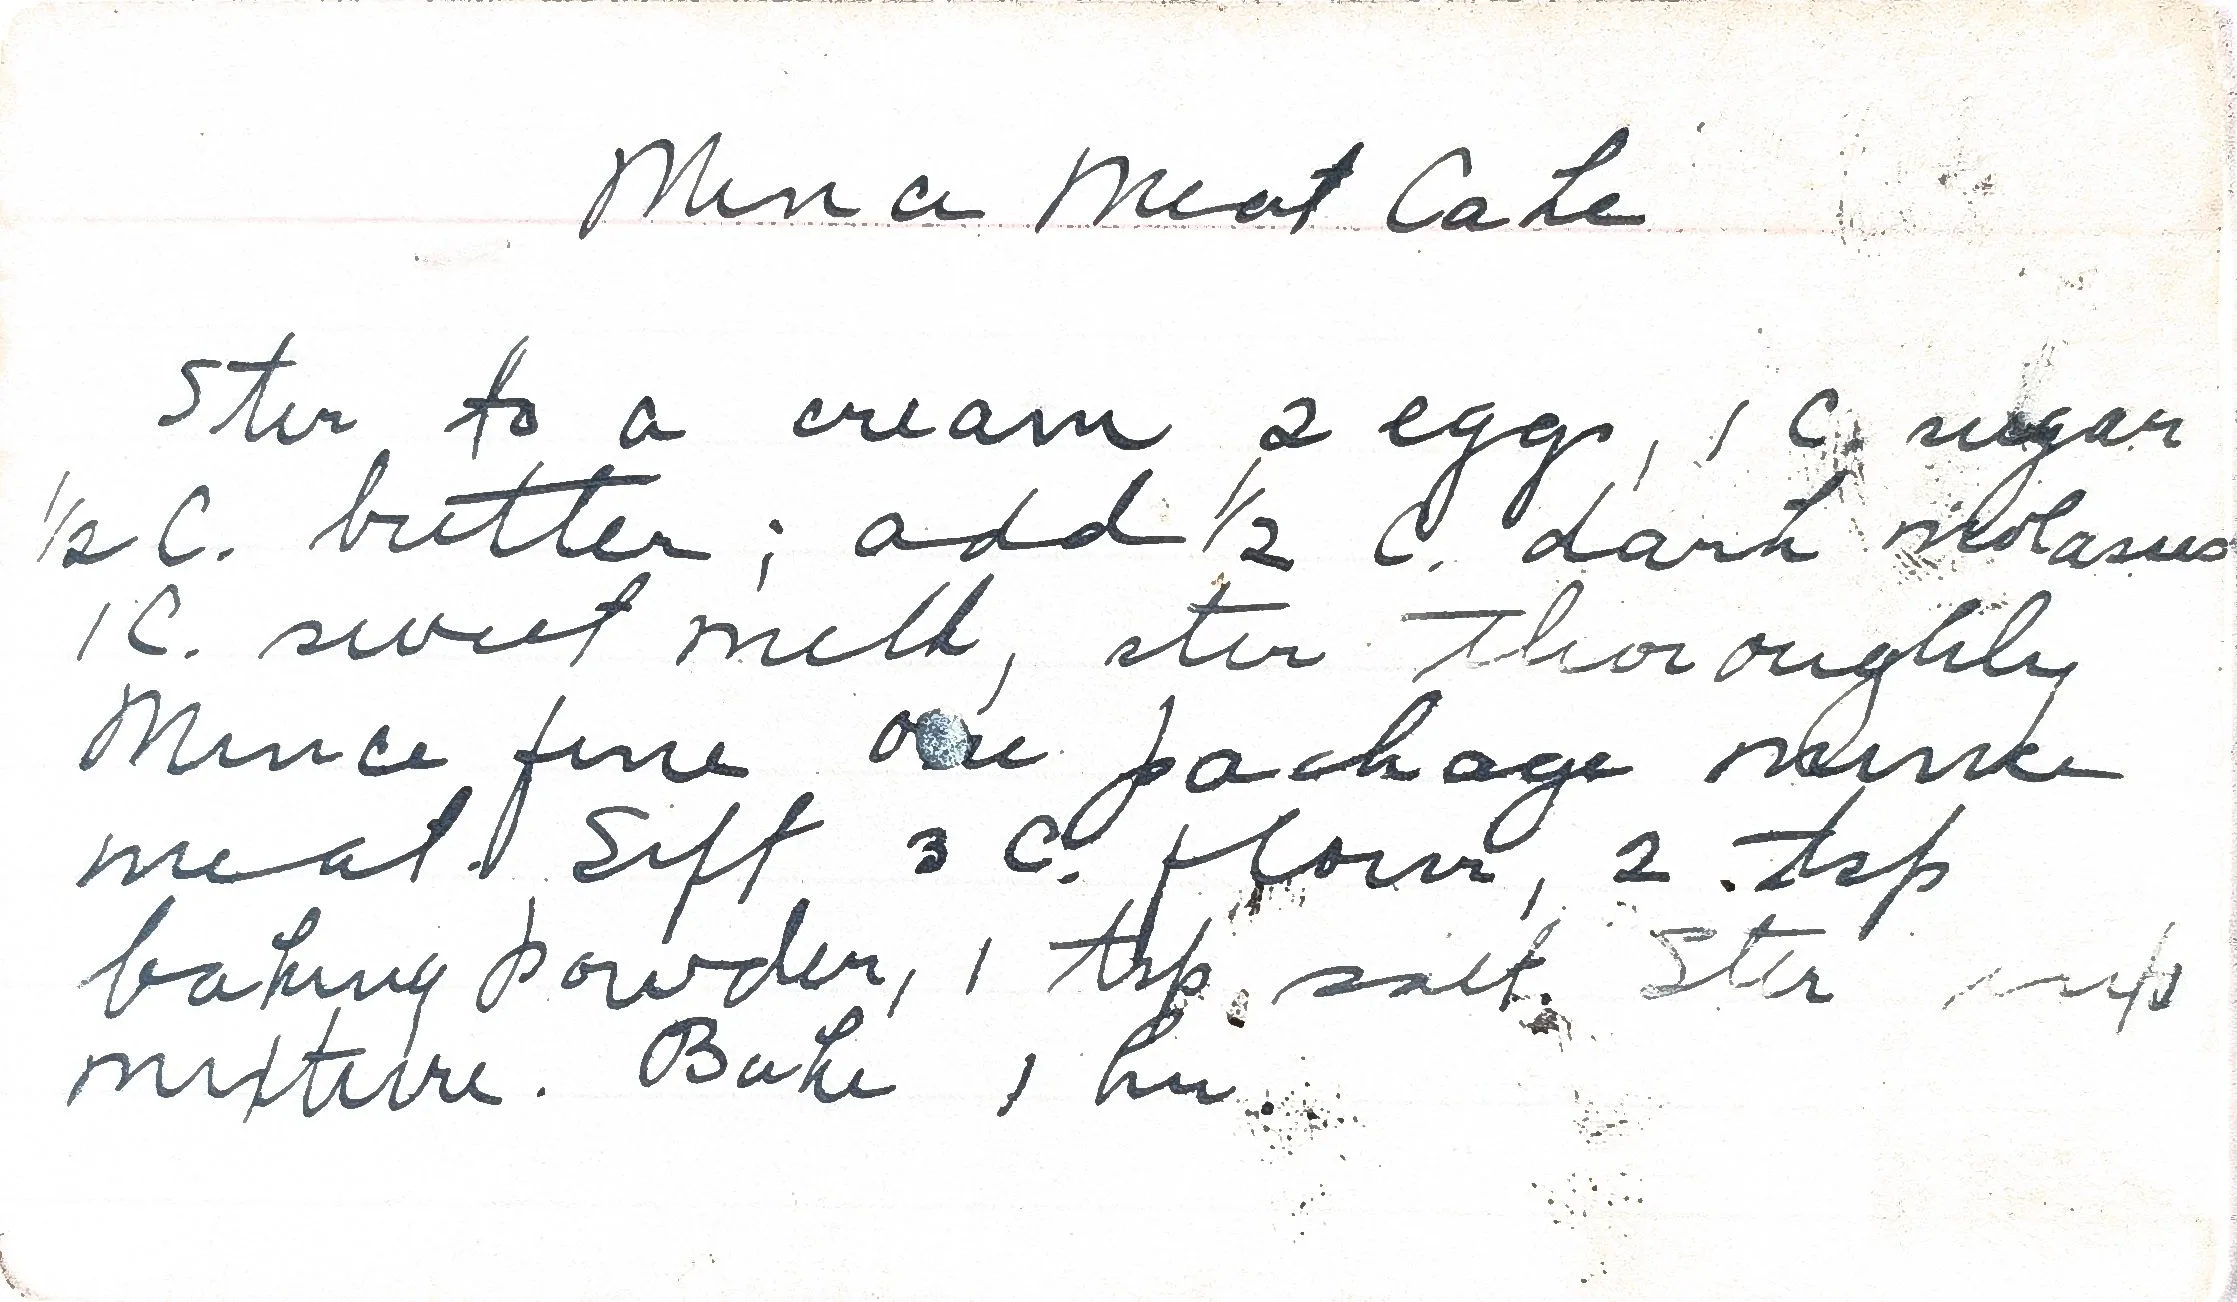 Mince Meat Cake
Stir to a cream 2 eggs, 1 C. sugar
1/2 C. butter; add 1/2 C. dark molasses
1 C. sweet milk, stir thoroughly
Mince fine one package mince
meat. Sift 3 C. flour, 2 tsp
baking powder, 1 tsp salt. Stir into
mixture. Bake 1 hr.